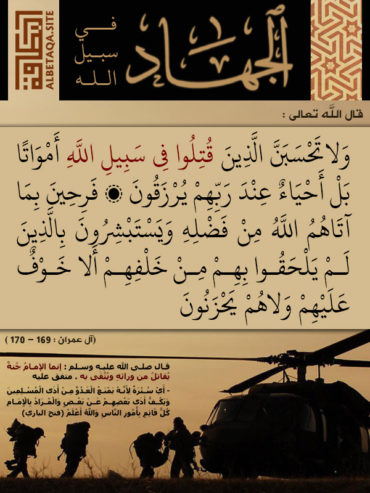 البطاقة
ALBETAQA.SITE
الجهاد
في
سبيل
الله
قال الله تعالى :
وَلَا تَحْسَبَنَّ الَّذِينَ قُتِلُوا فِي سَبِيلِ اللَّهِ أَمْوَاتًا
بَلْ أَحْيَاءٌ عِنْدَ رَبِّهِمْ يُرْزَقُونَ ۞ فَرِحِينَ بِمَا
آتَاهُمُ اللَّهُ مِنْ فَضْلِهِ وَيَسْتَبْشِرُونَ بِالَّذِينَ
لَمْ يَلْحَقُوا بِهِمْ مِنْ خَلْفِهِمْ أَلَّا خَوْفٌ
عَلَيْهِمْ وَلَا هُمْ يَحْزَنُونَ
(آل عمران : 169 - 170 )
قال صلى الله عليه وسلم : إنما الإمامُ جُنةٌ
يُقاتَلُ من ورائه ويُتَّقى به . متفق عليه
- أَيْ سُتْرَةٌ لِأَنَّهُ يَمْنَعُ الْعَدُوَّ مِنْ أَذَى الْمُسْلِمِينَ
وَيَكُفُّ أَذَى بَعْضِهِمْ عَنْ بَعْضٍ وَالْمُرَادُ بِالْإِمَامِ
كُلُّ قَائِمٍ بِأُمُورِ النَّاسِ وَاللَّهُ أَعْلَمُ (فتح الباري)